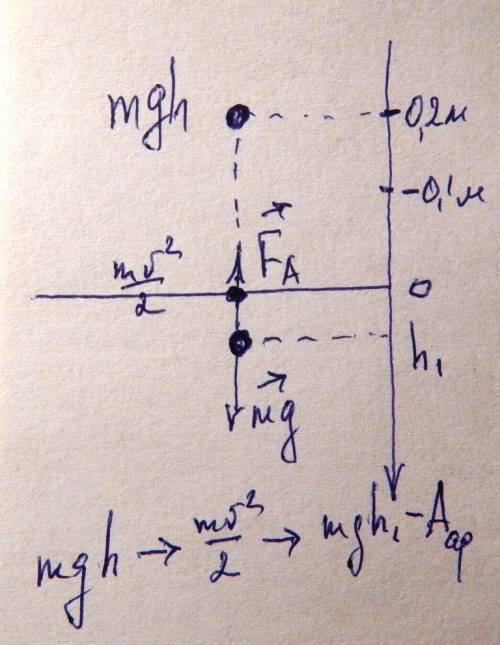 mgh
0,2м
-0,1м
F_A
mv²/2
0
h₁
mg
mgh → mv²/2 → mgh₁ - A_ар